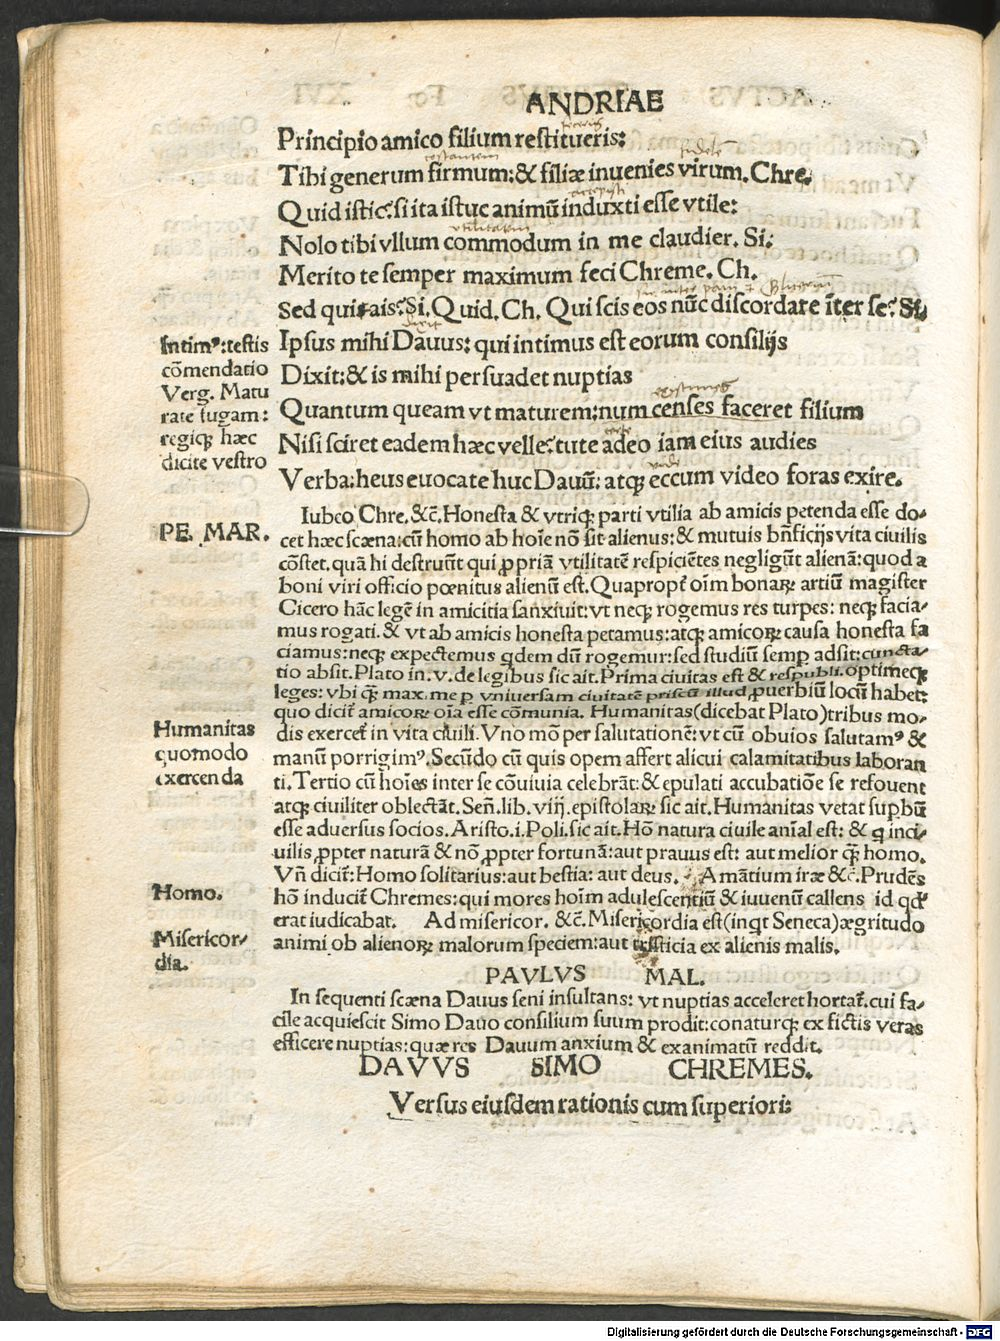 ANDRIAE
Principio amico filium restitueris:
Tibi generum firmum: & filiæ inuenies virum. Chre.
Quid istic? si ita istuc animū induxti esse vtile:
Nolo tibi vllum commodum in me claudier. Si.
Merito te semper maximum feci Chreme. Ch.
Sed qui ais? Si. Quid. Ch. Qui scis eos nūc discordare īter se? Si.
Ipsus mihi Dauus: qui intimus est eorum consilijs
Dixit: & is mihi persuadet nuptias
Quantum queam vt maturem: num censes faceret filium
Nisi sciret eadem hæc velle? tute adeo iam eius audies
Verba: heus euocate huc Dauū: atqꝫ eccum video foras exire.
Intimꝰ: testis
cōmendatio
Verg. Matu
rate fugam:
regiqꝫ hæc
dicite vestro
PE. MAR.
Iubeo Chre. &c̄. Honesta & vtriqꝫ parti vtilia ab amicis petenda esse do-
cet hæc scæna: cū homo ab hoīe nō sit alienus: & mutuis bn̄ficijs vita ciuilis
cōstet. quā hi destruūt qui ꝓpriā vtilitatē respiciētes negligūt alienā: quod a
boni viri officio pœnitus alienū est. Quapropt̄ oīm bonaꝝ artiū magister
Cicero hāc legē in amicitia sanxiuit: vt neqꝫ rogemus res turpes: neqꝫ facia-
mus rogati. & vt ab amicis honesta petamus: atqꝫ amicoꝝ causa honesta fa
ciamus: neqꝫ expectemus qdem dū rogemur: sed studiū semꝑ adsit: cuncta-
tio absit. Plato in. v. de legibus sic ait. Prima ciuitas est & respubli. optimeqꝫ
leges: vbi qꝫ̄ max. me ꝑ vniuersam ciuitatē priscū illud ꝓuerbiū locū habet:
quo dicit̄ amicoꝝ oīa esse cōmunia. Humanitas (dicebat Plato) tribus mo-
dis exercet̄ in vita ciuili. Vno mō per salutationē: vt cū obuios salutamꝰ &
manū porrigimꝰ. Secūdo cū quis opem affert alicui calamitatibus laboran
ti. Tertio cū hoīes inter se cōuiuia celebrāt: & epulati accubatiōe se refouent
atqꝫ ciuiliter oblectāt. Señ. lib. viij. epistolaꝝ sic ait. Humanitas vetat supbū
esse aduersus socios. Aristo. i. Poli. sic ait. Hō natura ciuile aīal est: & q inci-
uilis ꝓpter naturā & nō ꝓpter fortunā: aut prauus est: aut melior qꝫ̄ homo.
Vn̄ dicit̄: Homo solitarius: aut bestia: aut deus. Amātium iræ &c̄. Prudēs
hō inducit̄ Chremes: qui mores hoīm adulescentiū & iuuenū callens id qd
erat iudicabat. Ad misericor. &c̄. Misericordia est (inqt Seneca) ægritudo
animi ob alienoꝝ malorum speciem: aut tristicia ex alienis malis.
Humanitas
quomodo
exercenda
Homo.
Misericor-
dia.
PAVLVS MAL.
In sequenti scæna Dauus seni insultans: vt nuptias acceleret hortat̄. cui fa-
cile acquiescit Simo Dauo consilium suum prodit: conaturqꝫ ex fictis veras
efficere nuptias: quæ res Dauum anxium & exanimatū reddit.
DAVVS SIMO CHREMES.
Versus eiusdem rationis cum superiori:
Digitalisierung gefördert durch die Deutsche Forschungsgemeinschaft - DFG